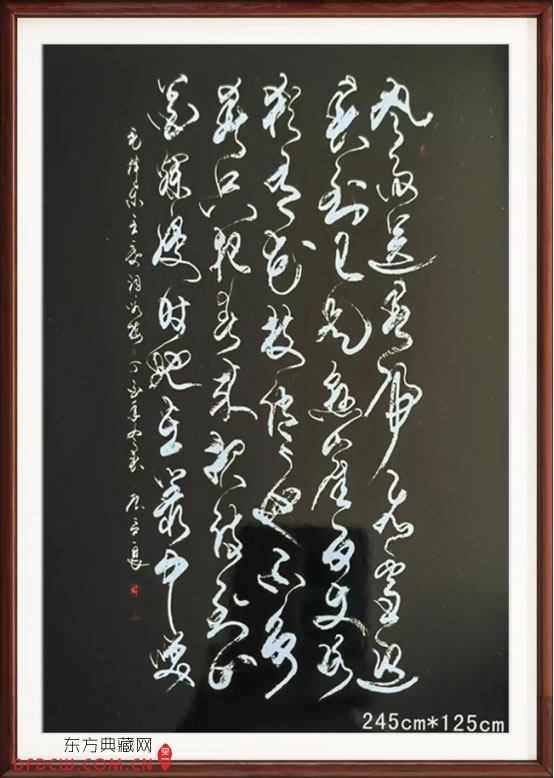 风雨送春归飞雪迎
春到已是悬崖百丈冰
犹有花枝俏俏也不争
春只把春来报待到山
花烂漫时她在丛中笑
毛泽东主席词咏梅 丁酉年
245cm*125cm
东方典藏网
DFDCW.COM.CN